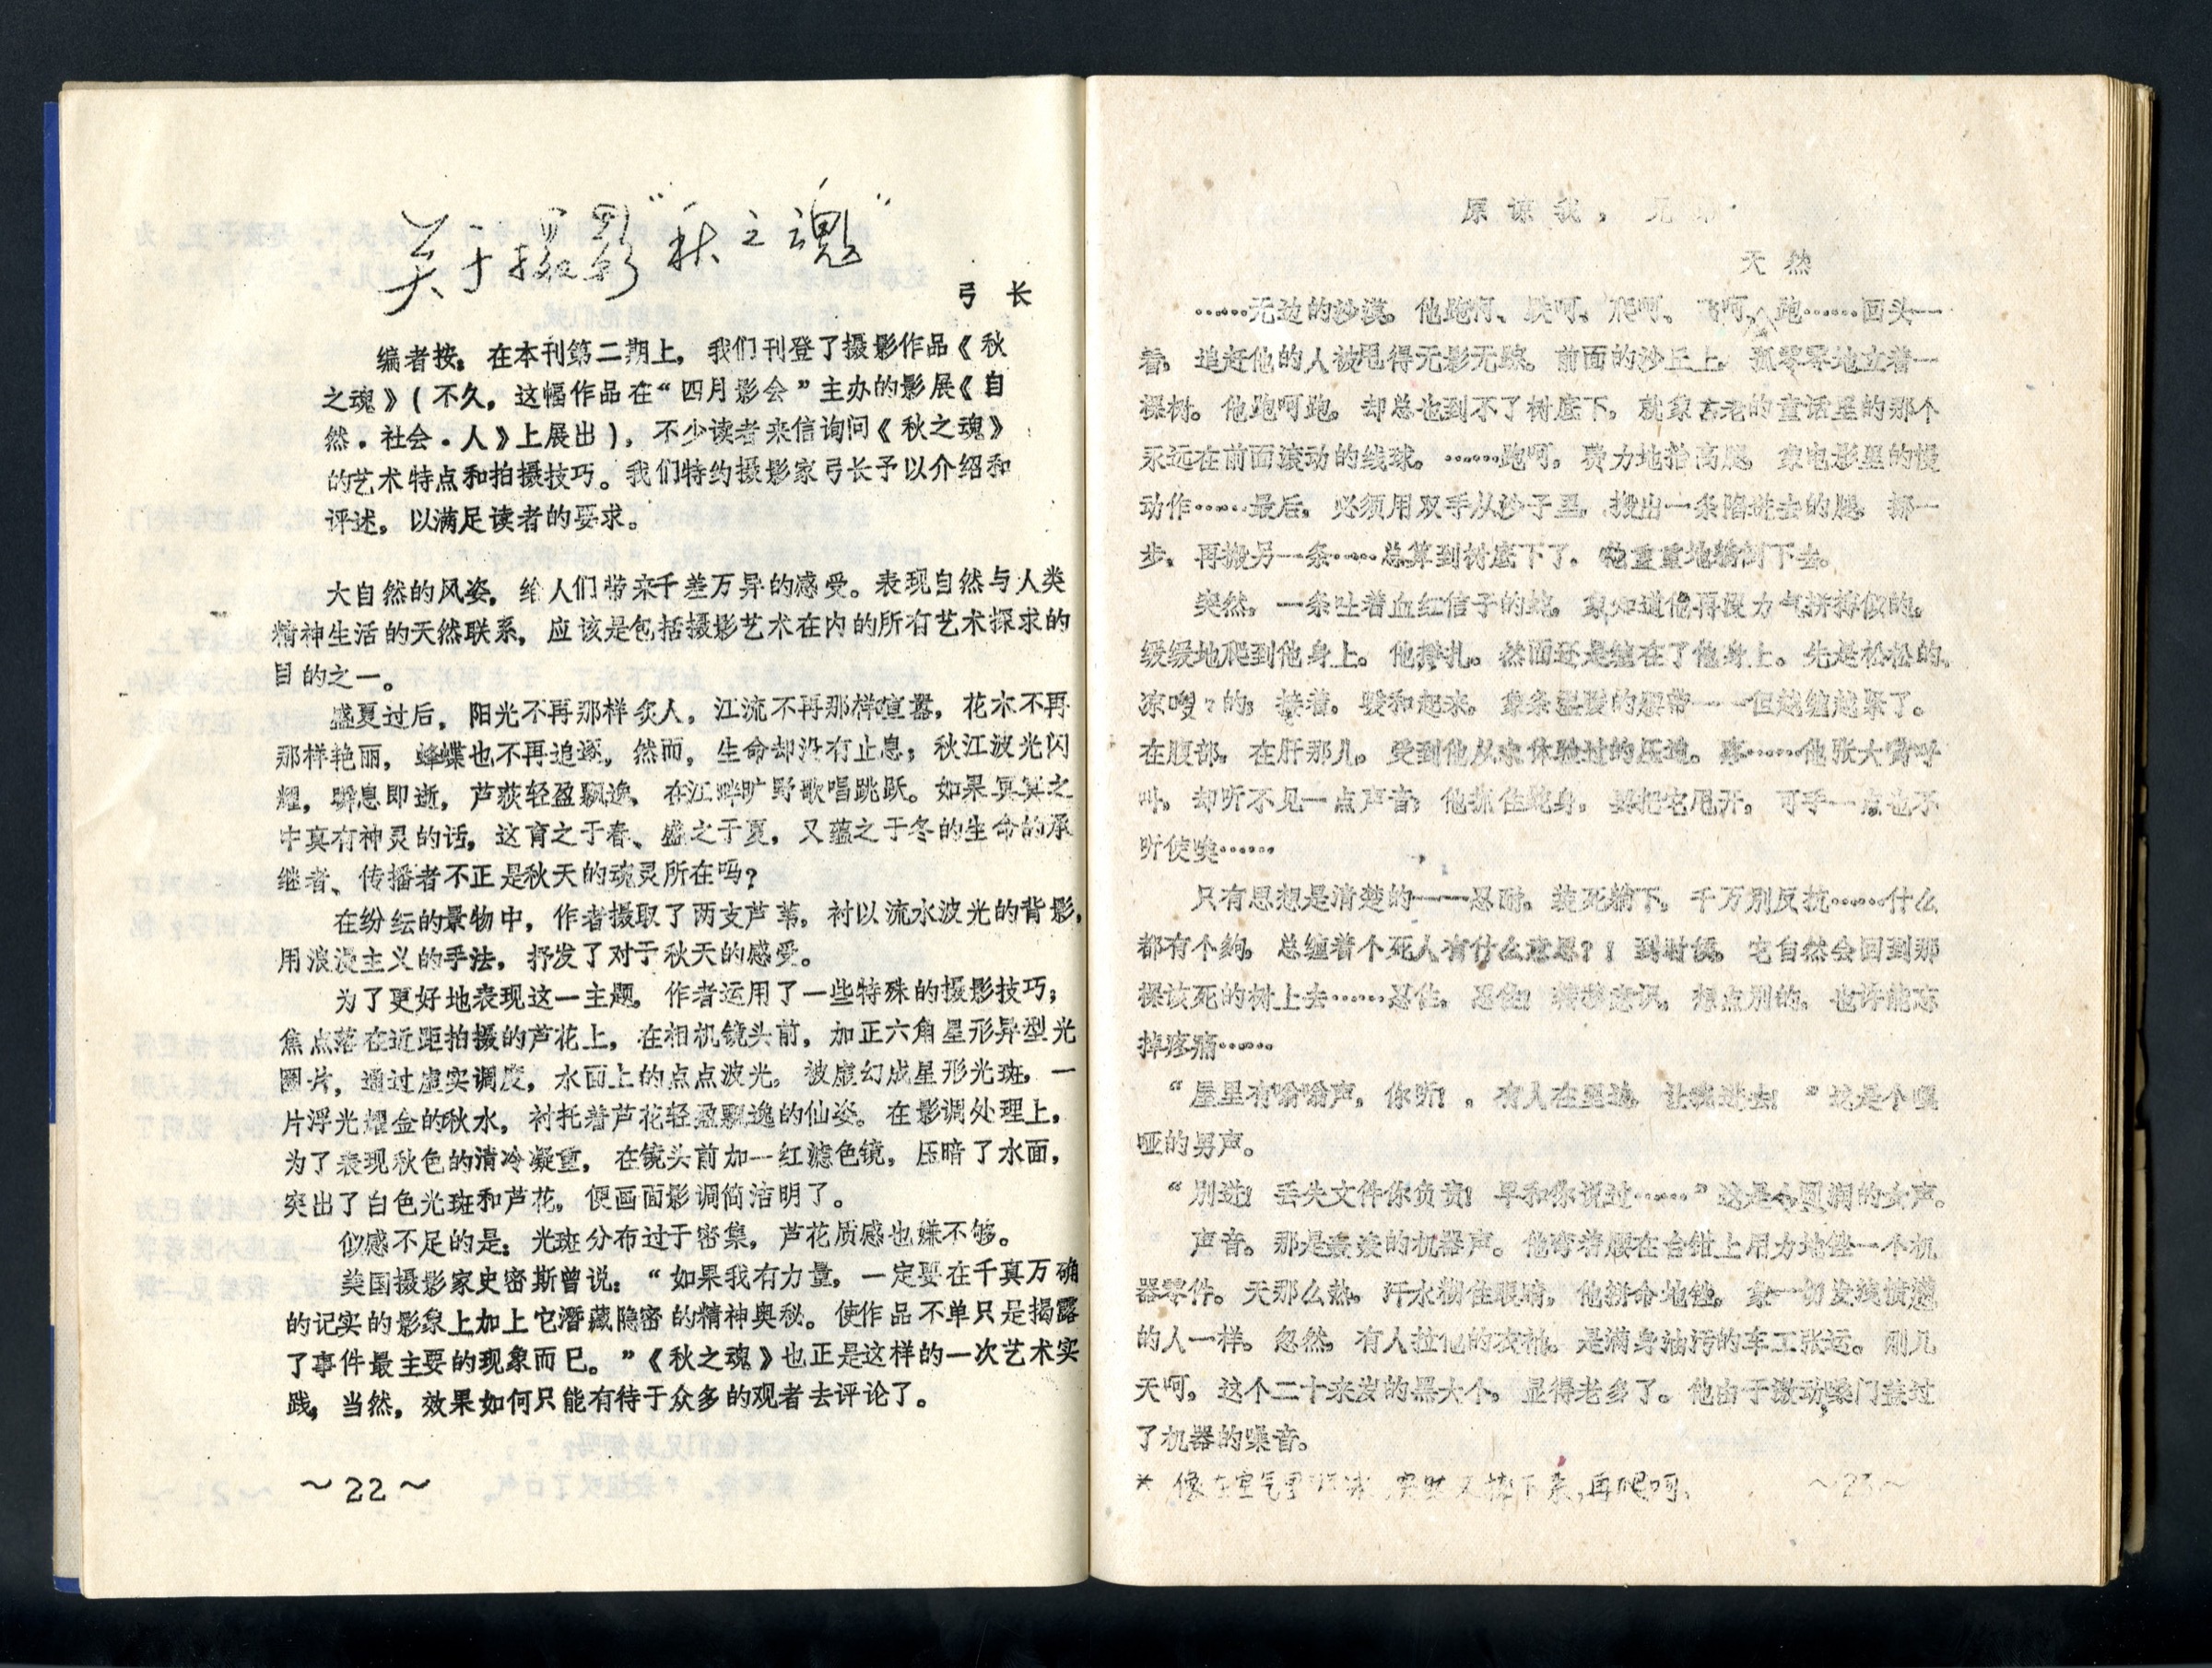 关于摄影“秋之魂”
弓 长
编者按：在本刊第二期上，我们刊登了摄影作品《秋
之魂》(不久，这幅作品在“四月影会”主办的影展《自
然．社会．人》上展出)，不少读者来信询问《秋之魂》
的艺术特点和拍摄技巧。我们特约摄影家弓长予以介绍和
评述，以满足读者的要求。
大自然的风姿，给人们带来千差万异的感受。表现自然与人类
精神生活的天然联系，应该是包括摄影艺术在内的所有艺术探求的
目的之一。
盛夏过后，阳光不再那样炙人，江流不再那样喧嚣，花木不再
那样艳丽，蜂蝶也不再追逐，然而，生命却没有止息；秋江波光闪
耀，瞬息即逝，芦荻轻盈飘逸、在江畔旷野歌唱跳跃。如果冥冥之
中真有神灵的话，这育之于春、盛之于夏，又蕴之于冬的生命的承
继者、传播者不正是秋天的魂灵所在吗？
在纷纭的景物中，作者摄取了两支芦苇，衬以流水波光的背影，
用浪漫主义的手法，抒发了对于秋天的感受。
为了更好地表现这一主题，作者运用了一些特殊的摄影技巧；
焦点落在近距拍摄的芦花上，在相机镜头前，加正六角星形异型光
圈片，通过虚实调度，水面上的点点波光，被虚幻成星形光斑，一
片浮光耀金的秋水，衬托着芦花轻盈飘逸的仙姿。在影调处理上，
为了表现秋色的清冷凝重，在镜头前加一红滤色镜，压暗了水面，
突出了白色光斑和芦花，使画面影调简洁明了。
似感不足的是：光斑分布过于密集，芦花质感也嫌不够。
美国摄影家史密斯曾说：“如果我有力量，一定要在千真万确
的记实的影象上加上它潜藏隐密的精神奥秘。使作品不单只是揭露
了事件最主要的现象而已。”《秋之魂》也正是这样的一次艺术实
践，当然，效果如何只能有待于众多的观者去评论了。
～22～
原谅我，兄弟
天 然
……无边的沙漠。他跑呵、跌呵、爬呵、飞呵、跑……回头一
看，追赶他的人被甩得无影无踪。前面的沙丘上，孤零零地立着一
棵树。他跑呵跑，却总也到不了树底下，就象古老的童话里的那个
永远在前面滚动的线球。……跑呵，费力地抬高腿，象电影里的慢
动作……最后，必须用双手从沙子里，搬出一条陷进去的腿，挪一
步，再搬另一条……总算到树底下了。他重重地躺倒下去。
突然，一条吐着血红信子的蛇，象知道他再没力气拼搏似的，
缓缓地爬到他身上。他挣扎。然而还是缠在了他身上。先是松松的，
凉嗖嗖的；接着，暖和起来，象条温暖的腰带——但越缠越紧了。
在腹部，在肝那儿，受到他从未体验过的压迫。疼……他张大嘴呼
叫，却听不见一点声音；他抓住蛇身，要把它甩开，可手一点也不
听使唤……
只有思想是清楚的——忍耐，装死躺下，千万别反抗……什么
都有个够，总缠着个死人有什么意思？！到时候，它自然会回到那
棵该死的树上去……忍住，忍住！转移意识，想点别的，也许能忘
掉疼痛……
“屋里有嗡嗡声，你听！，有人在里边，让我进去！”这是个嘶
哑的男声。
“别进！丢失文件你负责！早和你说过……”这是个圆润的女声。
声音。那是轰轰的机器声。他弯着腰在台钳上用力地锉一个机
器零件。天那么热，汗水糊住眼睛，他拼命地锉，象一切发泄愤懑
的人一样。忽然，有人拉他的衣袖，是满身油污的车工张运。刚几
天呵，这个二十来岁的黑大个，显得老多了。他由于激动嗓门盖过
了机器的噪音。
* 像在空气里游泳，突然又掉下来，再爬呵、
～23～